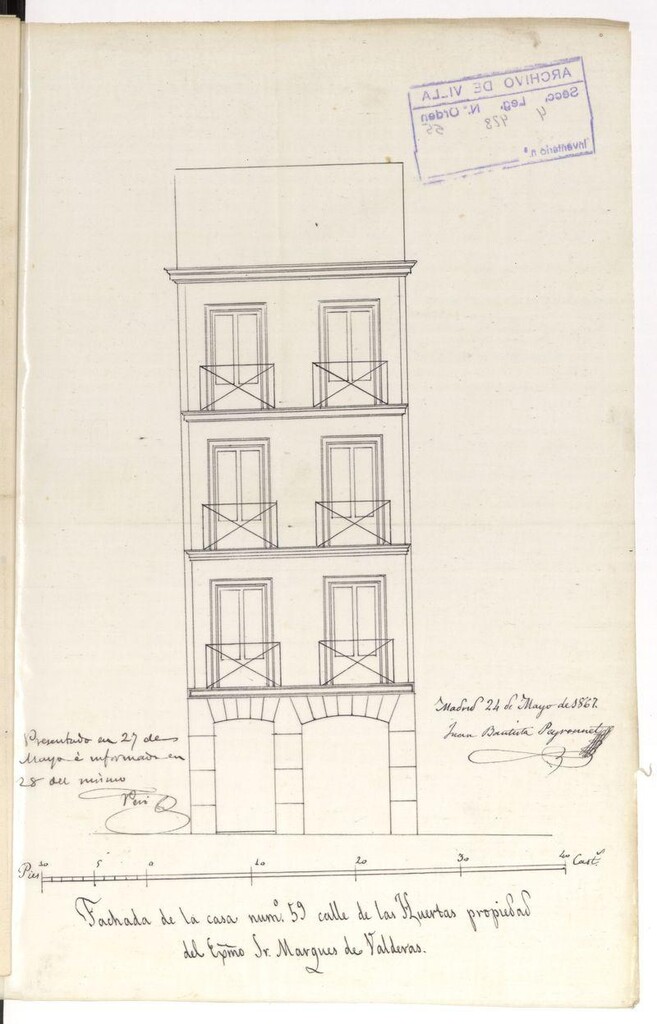 ARCHIVO DE VILLA
Secc. Leg. N.º Orden
4 928 55
Inventario n.º
Madrid 24 de Mayo de 1867.
Juan Bautista Peyronnet
Presentado en 27 de
Mayo é informado en
28 del mismo
Pies 10 5 0 10 20 30 40 Cast.s
Fachada de la casa num.º 59 calle de las Huertas propiedad
del Exmo Sr. Marques de Valderas.